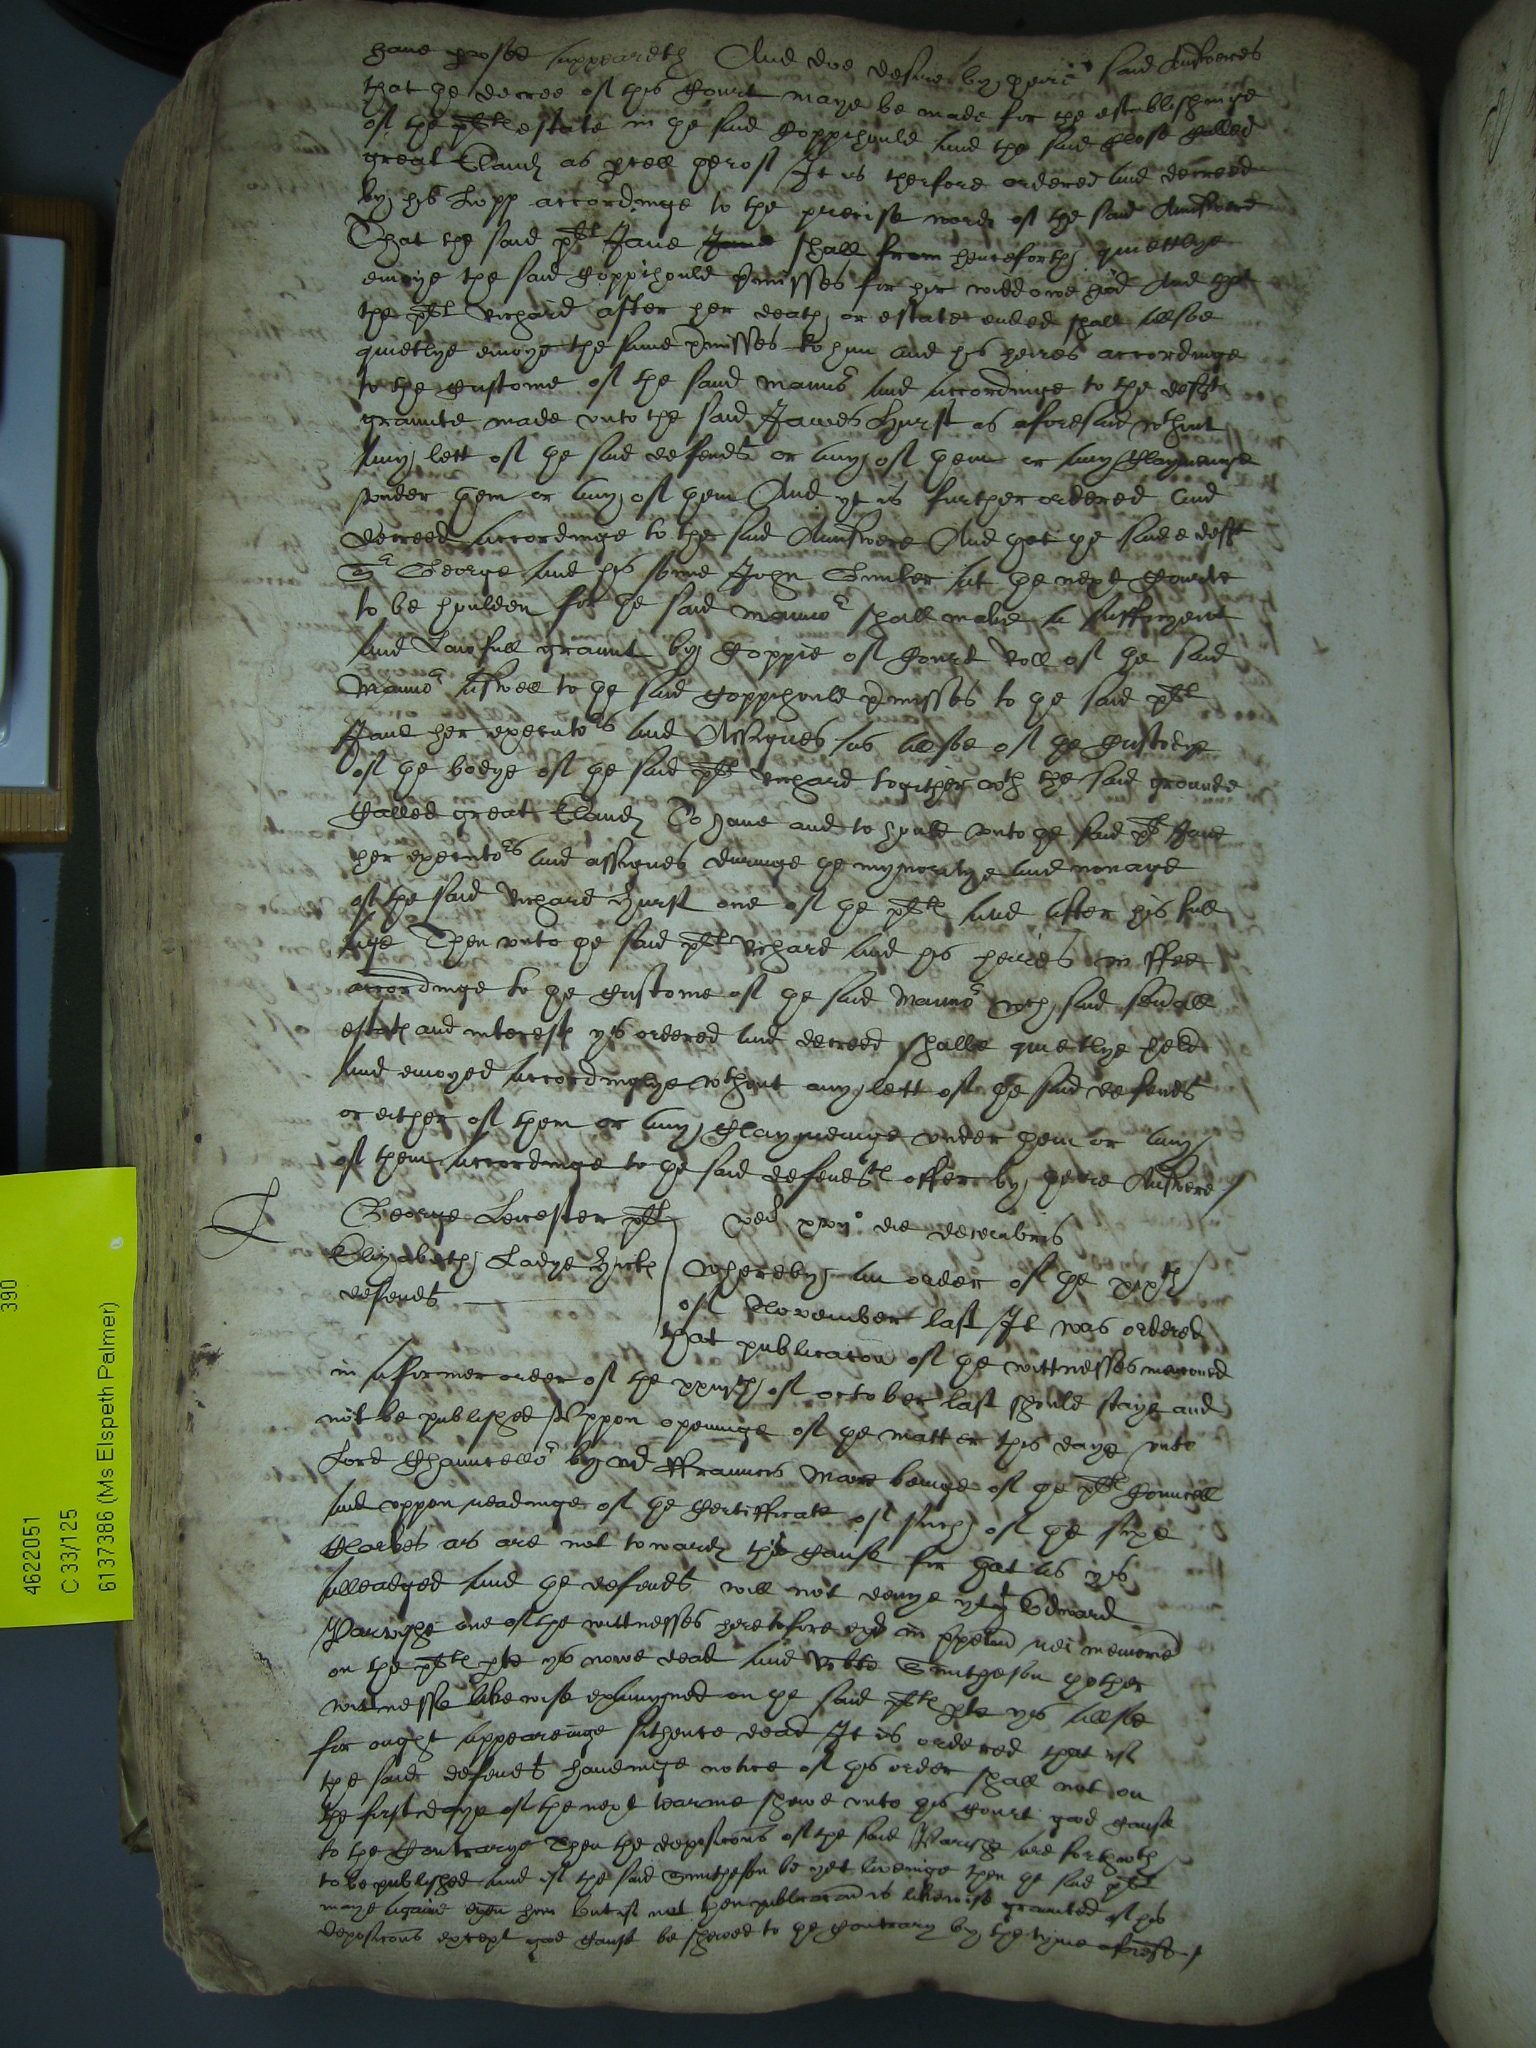 haue hose appeareth And doe desire by theire said Aunsweres
that the decree of this Court maye be made for the establishinge
of the pl<sup>t</sup> estate in the said Coppihould and the said Close Called
great Elandꝭ as p̱cell therof It is therfore ordered and decreed
by his Lo:pp accordinge to the precise wordꝭ of the said Aunswere
That the said plt Jane shall from henceforth quiettlye
enioye the said Coppihould p̃misses for hir widdowehud And that
the plt Richard after her death or estate ended shall allsoe
quietlye enioye the same p̃misses to him and his heires accordinge
to the Custome of the said mannor and accordinge to the deftes
graunte made vnto the said James Hurst as aforesaid wthout
any lett of the said defendtꝭ or any of them or any Claymeinge
vnder them or any of them And yt is further ordered and
decreed accordinge to the said Aunswere And that the said defft
Sr George and his sonne John at the next Courte
to be houlden for the said mannor shall make a sufficyent
and Lawfull graunt by Coppie of Court Roll of the said
Mannor aswell to the said Coppihould p̃misses to the said plt
Jane her executors and Assignes as allsoe of the Custodye
of the bodye of the said plt Richard togither wth the said grounde
Called great Elandꝭ To haue and to hould vnto the said plt Jane
her executors and assignes duringe the mynoritye and nonage
of the said Richard Hurst one of the pltꝭ and after his full
age Then vnto the said plt Richard and his heires in ffee
accordinge to the Custome of the said Mannor wch said seuerall
estatꝭ and interestꝭ ys ordered and decreed shalbe quietlye held
and enioyed accordinglye wthout any lett of the said defendtꝭ
or either of them or any Claymeinge vnder them or any
of them accordinge to the said defendtꝭ offer by theire Aunswere /
George Leicester plt
Elizabeth Ladye
defendt
die decembris
Whereby an order of the xixth
of November last It was ordered
that publicacon of the wittnesses mencioned
in a former order of the of october last should staye and
not be published Vppon openinge of the matter this daye vnto
Lord Chauncellor by mr ffrauncis Moore beinge of the pltꝭ Councell
and vppon readinge of the Certifficate of such of the sixe
Clarkes as are not towardꝭ this Cause for that as ys
alleadged and the defendt will not denye yt Edward
Parrishe one of the wittnesses heretofore exd in p̱petuā rei memoriā
on the pltꝭ p̱te ys nowe dead and Robte Smitheson thother
wittnesse likewise examyned on the said pltꝭ p̱te ys allsoe
for ought appearinge sithence dead It is ordered that if
the said defendt haueinge notice of this order shall not on
the first daye of the next tearme shewe vnto this Court good Cause
to the Contrarye Then the deposicons of the said Parrishe are forthwth
to be published and if the said Smitheson be yet liveinge then the said plt
maye againe exēn him but if not then publicacōn is likewise graunted of his
deposicons except good Cause be shewed to the Contrary by the tyme aforesd /
4622051
390
C 33/125
6137386 (Ms Elspeth Palmer)